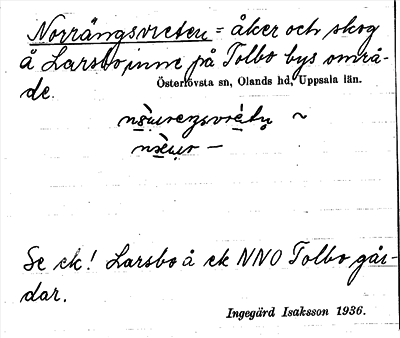 Norrängsvreten = åker och skog
å Larsbo, inne på Tolbo bys områ-
de.
Österlövsta sn, Olands hd, Uppsala län.
Se ek! Larsbo å ek NNO Tolbo går-
dar.
Ingegärd Isaksson 1936.